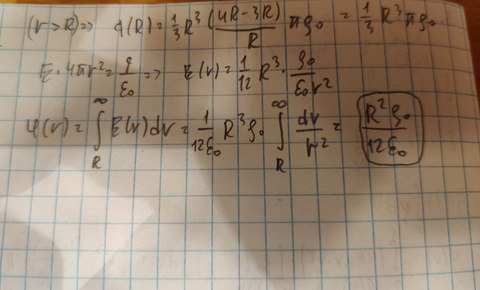 (r>R)=> q(R)=1/3 R³ (4R-3R)/R πρ₀ = 1/3 R³ πρ₀
E·4πr²=q/ε₀ => E(r)=1/12 R³·ρ₀/(ε₀r²)
φ(r)=∫_R^∞ E(r)dr=1/(12ε₀) R³ρ₀ ∫_R^∞ dr/r² = R²ρ₀/(12ε₀)